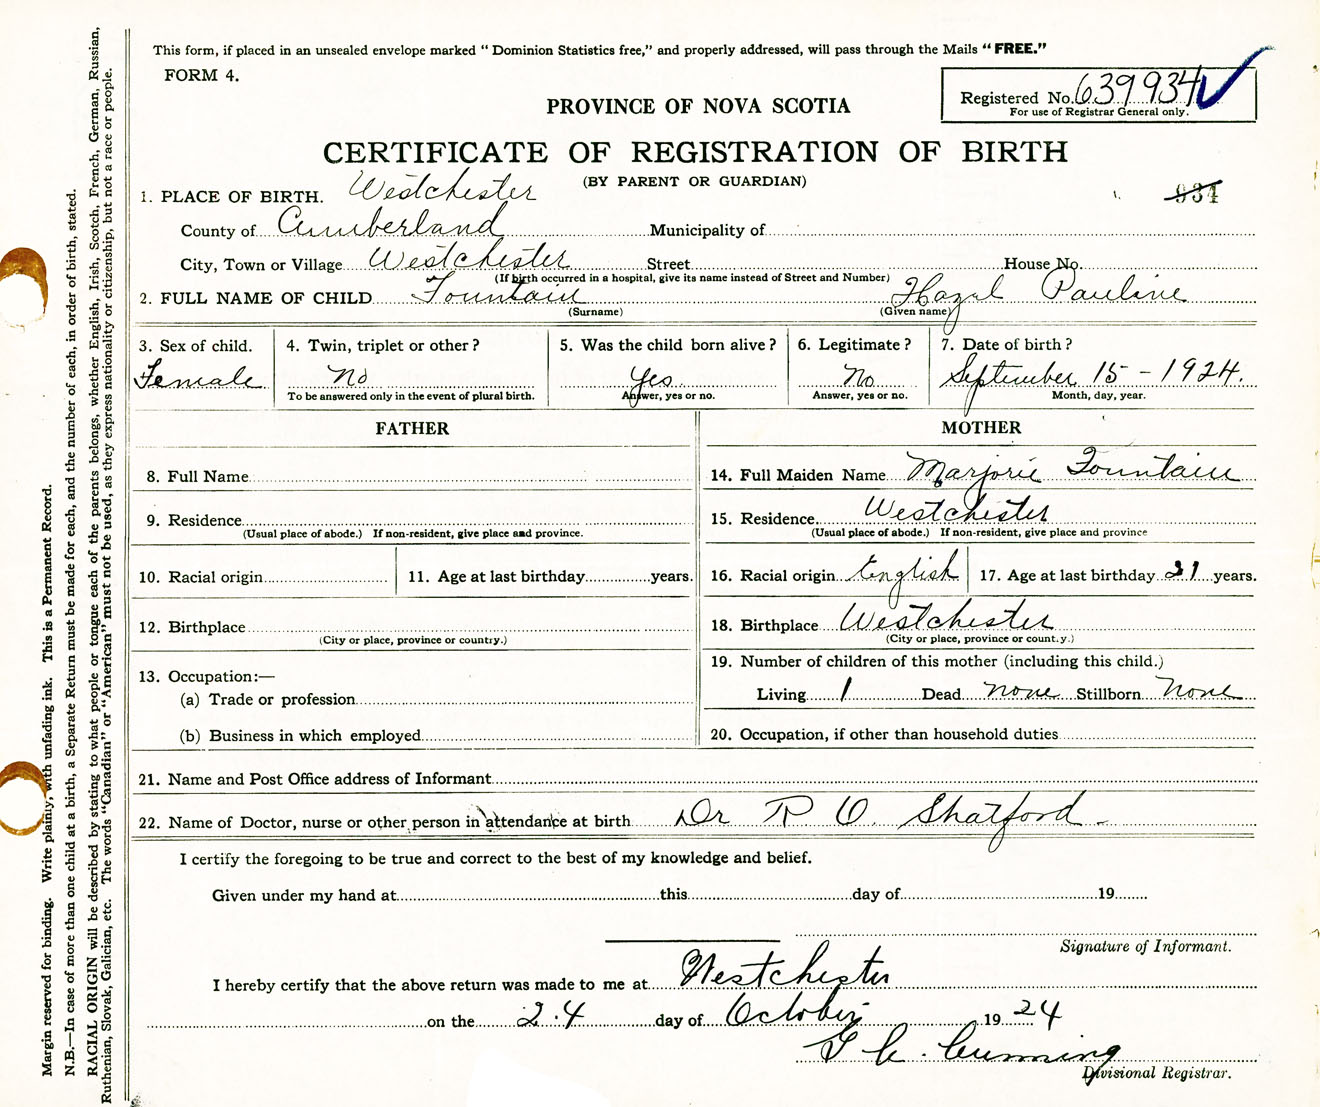 This form, if placed in an unsealed envelope marked “ Dominion Statistics free,” and properly addressed, will pass through the Mails “ FREE.”
FORM 4.
Registered No. 639934
For use of Registrar General only.
PROVINCE OF NOVA SCOTIA
CERTIFICATE OF REGISTRATION OF BIRTH
(BY PARENT OR GUARDIAN)
934
1. PLACE OF BIRTH. Westchester
County of Cumberland Municipality of
City, Town or Village Westchester Street House No.
(If birth occurred in a hospital, give its name instead of Street and Number)
2. FULL NAME OF CHILD Fountain Hazel Pauline
(Surname) (Given name)
3. Sex of child. Female
4. Twin, triplet or other ? No
To be answered only in the event of plural birth.
5. Was the child born alive ? Yes
Answer, yes or no.
6. Legitimate ? No
Answer, yes or no.
7. Date of birth ? September 15 - 1924.
Month, day, year.
FATHER
8. Full Name
9. Residence
(Usual place of abode.) If non-resident, give place and province.
10. Racial origin 11. Age at last birthday years.
12. Birthplace
(City or place, province or country.)
13. Occupation:—
(a) Trade or profession
(b) Business in which employed
MOTHER
14. Full Maiden Name Marjorie Fountain
15. Residence Westchester
(Usual place of abode.) If non-resident, give place and province
16. Racial origin English 17. Age at last birthday 21 years.
18. Birthplace Westchester
(City or place, province or count.y.)
19. Number of children of this mother (including this child.)
Living 1 Dead none Stillborn None
20. Occupation, if other than household duties
21. Name and Post Office address of Informant
22. Name of Doctor, nurse or other person in attendance at birth Dr R O. Shatford
I certify the foregoing to be true and correct to the best of my knowledge and belief.
Given under my hand at this day of 19
Signature of Informant.
I hereby certify that the above return was made to me at Westchester
on the 24 day of October 19 24
Cumming
Divisional Registrar.
Margin reserved for binding. Write plainly, with unfading ink. This is a Permanent Record.
N.B.—In case of more than one child at a birth, a Separate Return must be made for each, and the number of each, in order of birth, stated.
RACIAL ORIGIN will be described by stating to what people or tongue each of the parents belongs, whether English, Irish, Scotch, French, German, Russian,
Ruthenian, Slovak, Galician, etc. The words “Canadian” or “American” must not be used, as they express nationality or citizenship, but not a race or people.